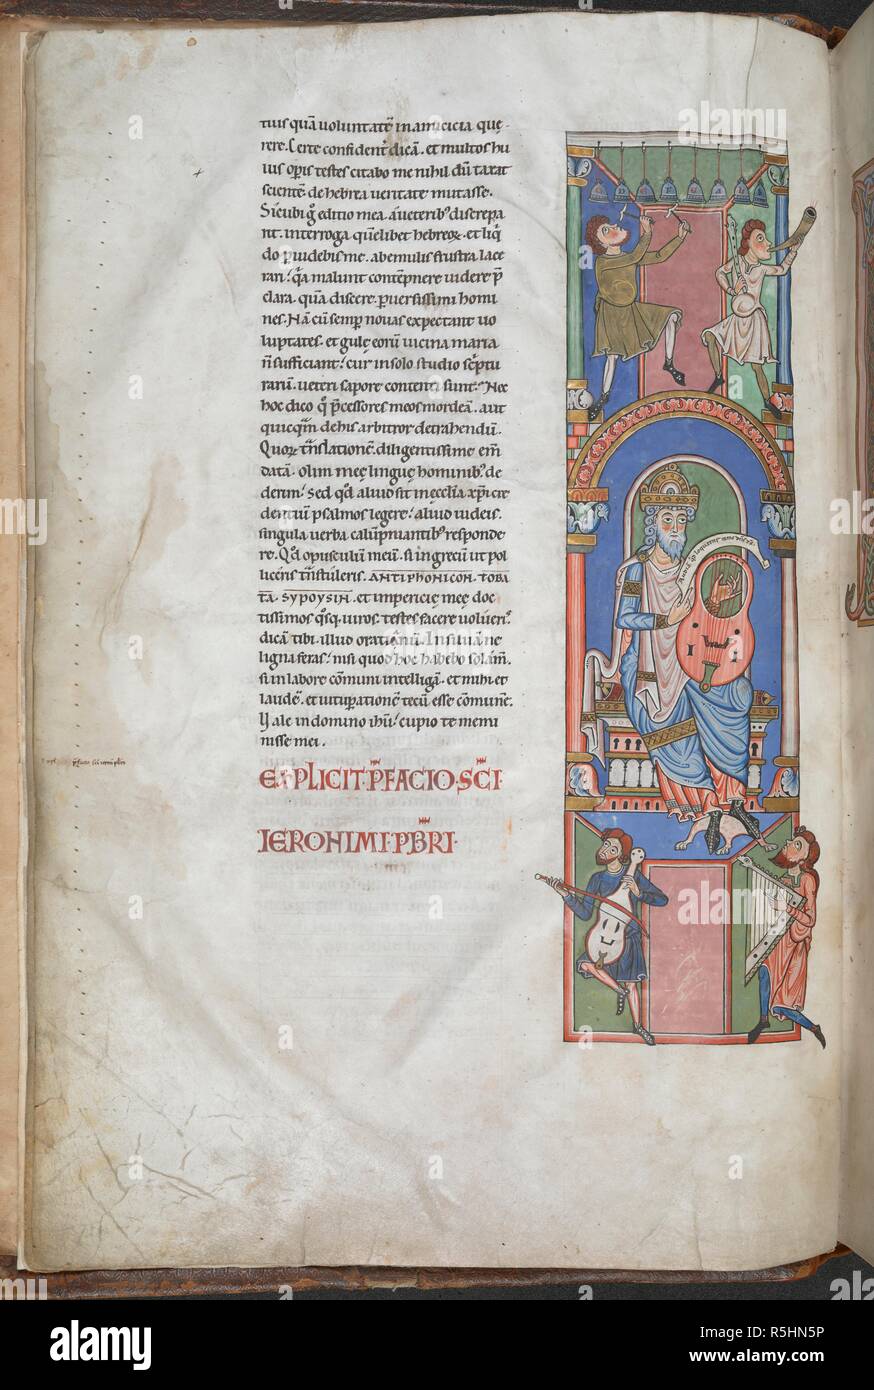 tius quā voluntatē in amicicia quę-
rere. Certe confident̄ dicā. et multos hu
ius op̄is testes citabo me nihil dū taxat
scientē. de hebraica veritate mutasse.
Sicubi g̊ editio mea. a veterib; discrepa
rit. interroga quēlibet hebreoꝝ. et liq̇
do p̱uidebis me. ab emulis frustra lace
rari. qͥ malunt contēpnere videre p̄
clara. quā discere. p̱versissimi homi
nes. Nā cū semp̱ novas expectant vo
luptates. et gulę eorū vicina maria
ñ sufficiant. cur in solo studio sc̄ptu
rarū. veteri sapore contenti sunt. Nec
hoc dico q̊ p̄cessores meos mordeā. aut
quicq̄m de his arbitror detrahendū.
Quoꝝ tn̄slationē. diligentissime em̄
datā. olim meę linguę hominib; de
derim. sed qd̄ aliud sit in ęcclīa xp̄i cre
dentiū psalmos legere. aliud iudeis.
singula verba calūpniantib; responde
re. Qd̄ opusculū meū. si in grecū ut pol
liceris tn̄stuleris.
et impericię męę doc
tissimos q̊sq̨ viros. testes facere volueris.
dicā tibi illud oratianū. In silvā ne
ligna feras. nisi quod hoc habebo solam̄.
si in labore cōmuni intelligā. et mihi et
laudē. et vitup̱ationē tecū esse cōmunē.
Vale in domino ihū. cupio te memi
nisse mei.
EXPLICIT P̄FACIO SC̄I
IERONIMI PB̄RI.
alamy
alamy
Image ID: R5HN5P
www.alamy.com